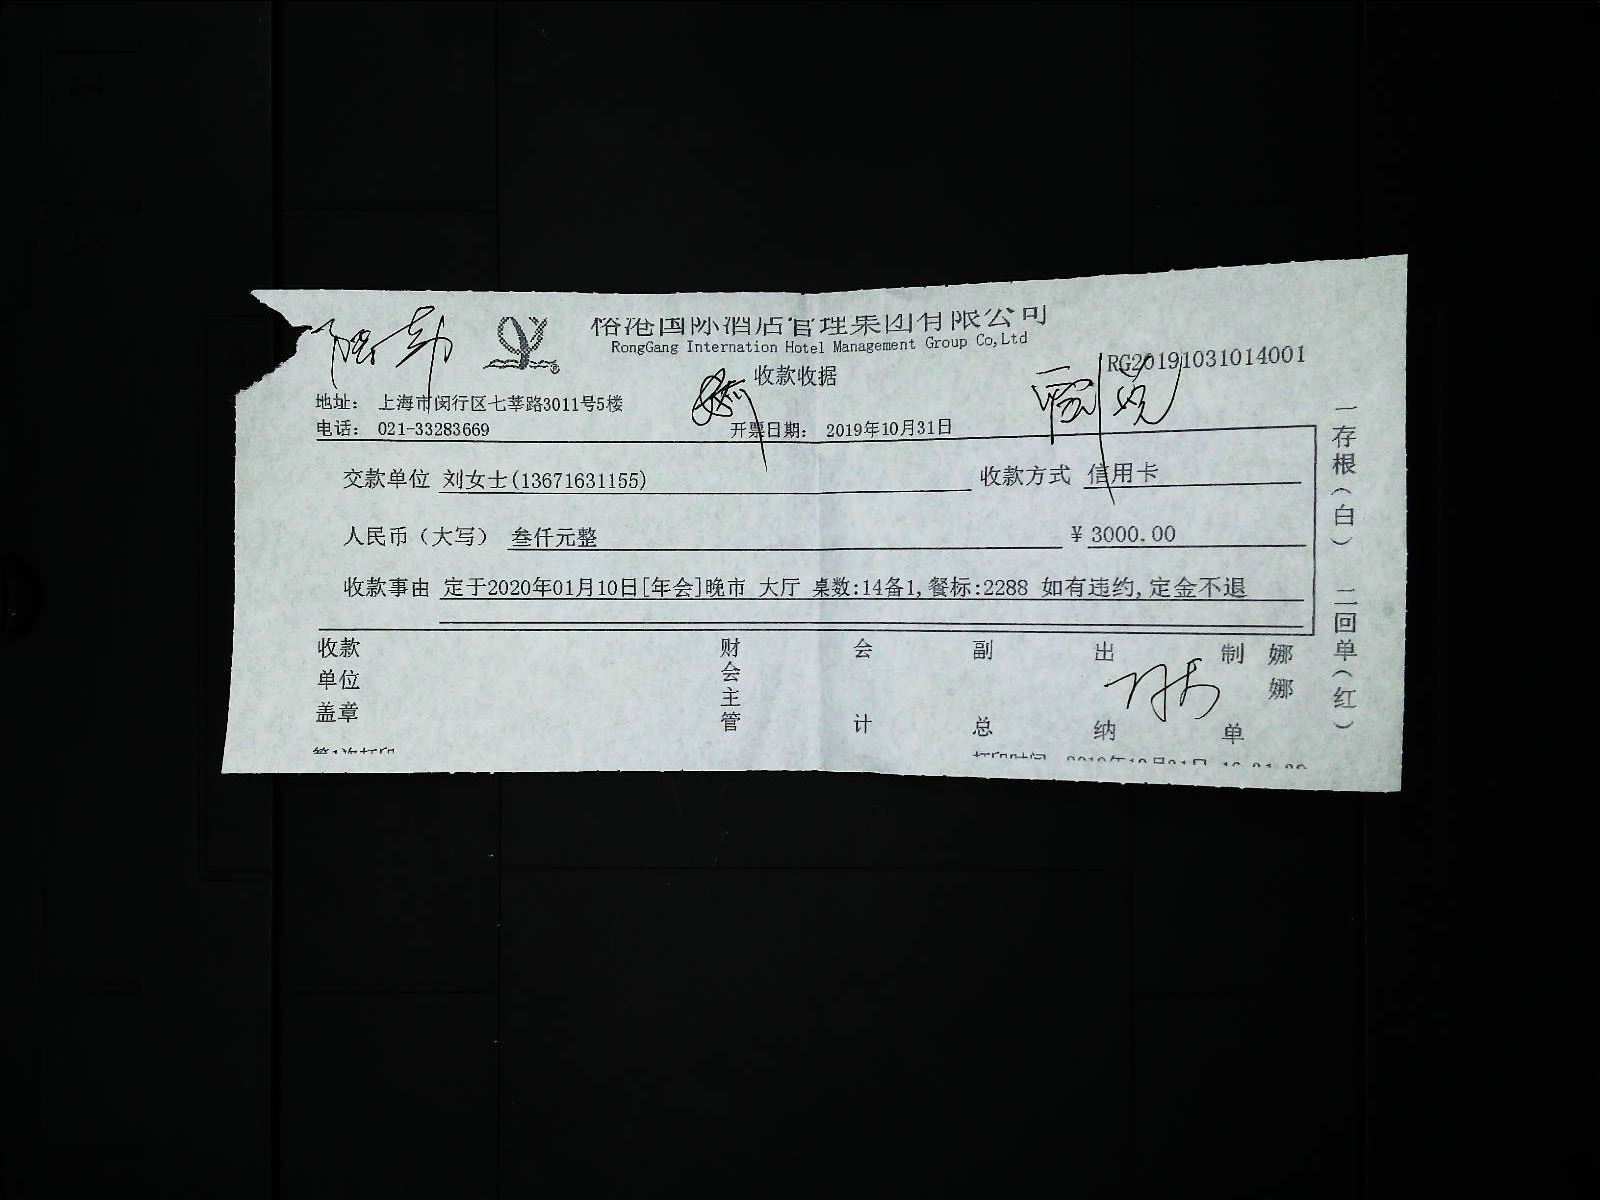 榕港国际酒店管理集团有限公司
RongGang Internation Hotel Management Group Co,Ltd
收款收据
RG20191031014001
地址： 上海市闵行区七莘路3011号5楼
电话： 021-33283669
开票日期： 2019年10月31日
交款单位 刘女士(13671631155) 收款方式 信用卡
人民币（大写） 叁仟元整 ¥ 3000.00
收款事由 定于2020年01月10日[年会]晚市 大厅 桌数:14备1,餐标:2288 如有违约,定金不退
收款单位盖章 财会主管 会计 副总 出纳 制单 娜娜
第1次打印
一存根（白） 二回单（红）